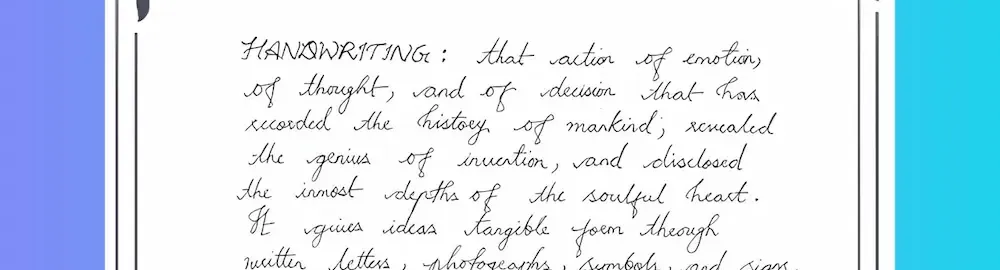 HANDWRITING: that action of emotion,
of thought, and of decision that has
recorded the history of mankind; revealed
the genius of invention, and disclosed
the inmost depths of the soulful heart.
It gives ideas tangible form through
written letters, photographs, symbols, and signs.